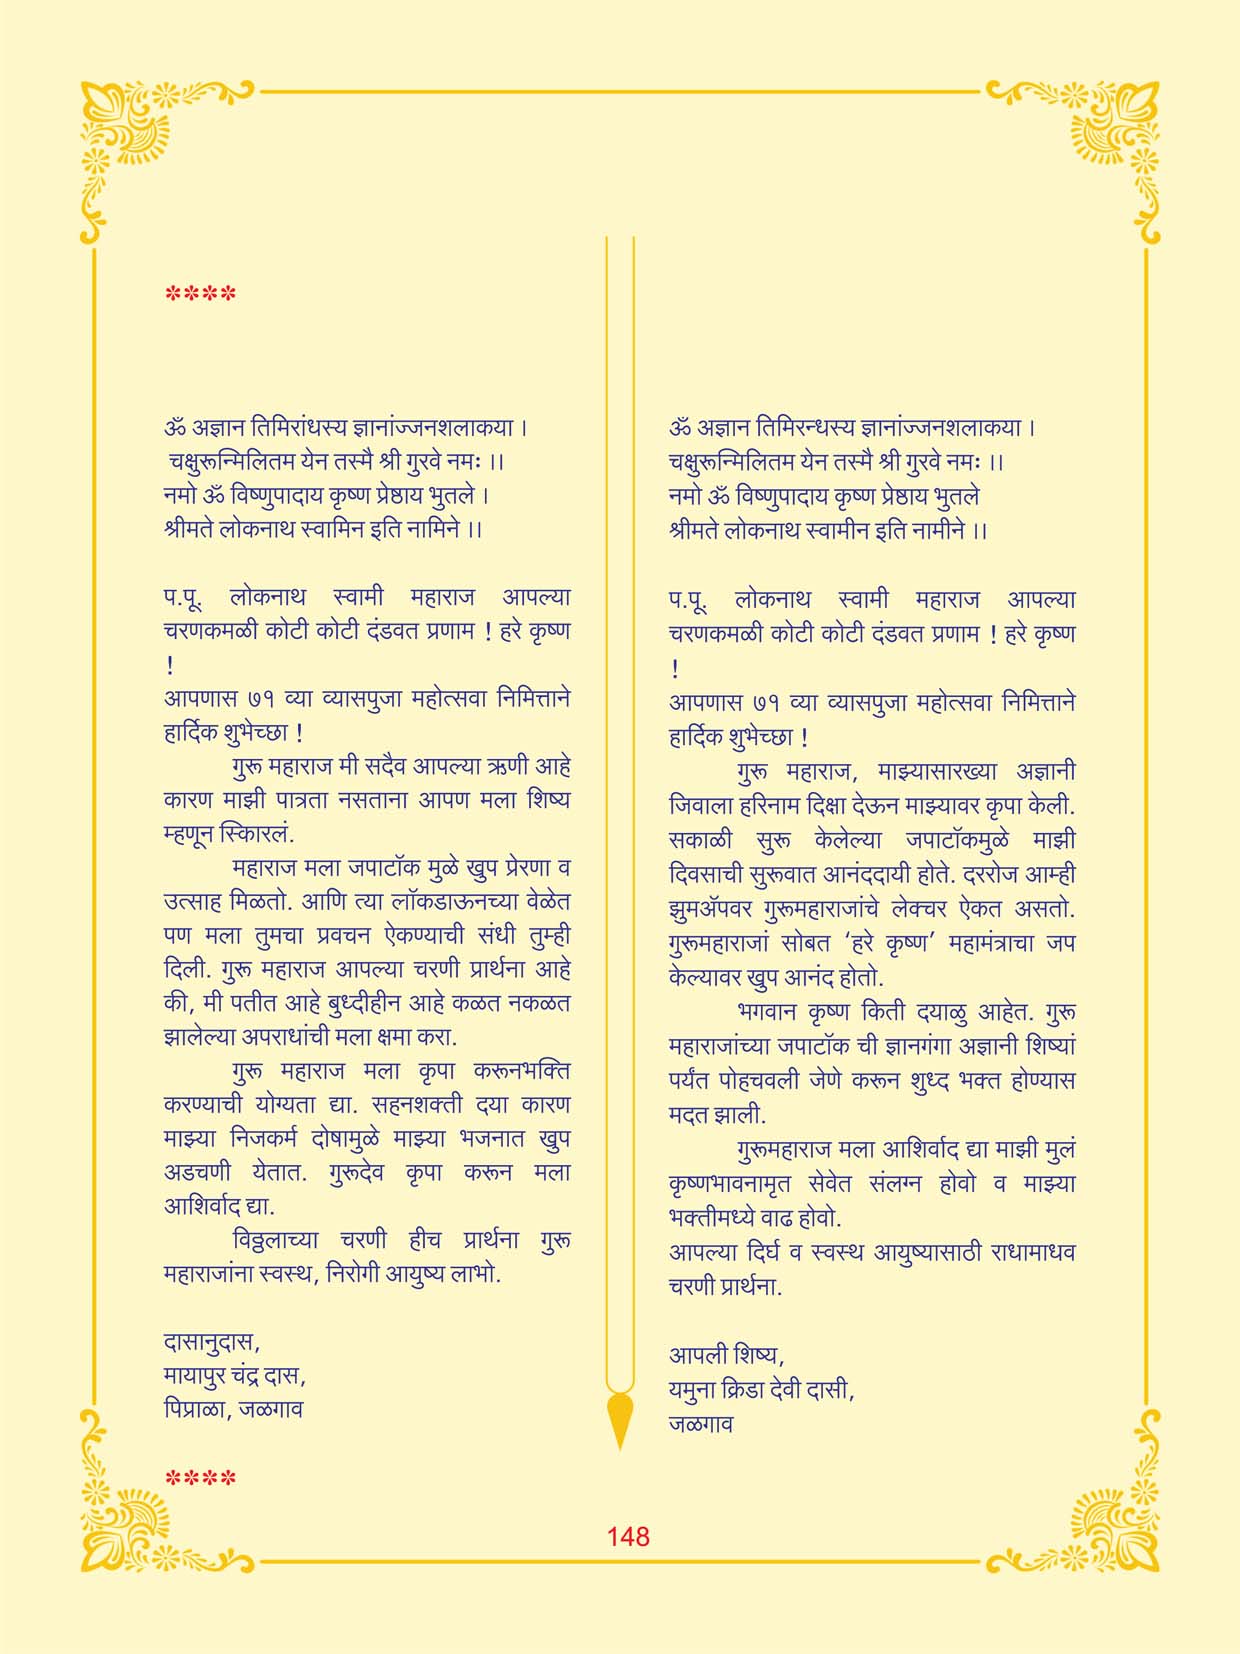 ****
ॐ अज्ञान तिमिरांधस्य ज्ञानांज्जनशलाकया ।
चक्षुरून्मिलितम येन तस्मै श्री गुरवे नमः ।।
नमो ॐ विष्णुपादाय कृष्ण प्रेष्ठाय भुतले ।
श्रीमते लोकनाथ स्वामिन इति नामिने ।।
प.पू. लोकनाथ स्वामी महाराज आपल्या
चरणकमळी कोटी कोटी दंडवत प्रणाम ! हरे कृष्ण
!
आपणास ७१ व्या व्यासपुजा महोत्सवा निमित्ताने
हार्दिक शुभेच्छा !
गुरू महाराज मी सदैव आपल्या ऋणी आहे
कारण माझी पात्रता नसताना आपण मला शिष्य
म्हणून स्किारलं.
महाराज मला जपाटॉक मुळे खुप प्रेरणा व
उत्साह मिळतो. आणि त्या लॉकडाऊनच्या वेळेत
पण मला तुमचा प्रवचन ऐकण्याची संधी तुम्ही
दिली. गुरू महाराज आपल्या चरणी प्रार्थना आहे
की, मी पतीत आहे बुध्दीहीन आहे कळत नकळत
झालेल्या अपराधांची मला क्षमा करा.
गुरू महाराज मला कृपा करूनभक्ति
करण्याची योग्यता द्या. सहनशक्ती दया कारण
माझ्या निजकर्म दोषामुळे माझ्या भजनात खुप
अडचणी येतात. गुरूदेव कृपा करून मला
आशिर्वाद द्या.
विठ्ठलाच्या चरणी हीच प्रार्थना गुरू
महाराजांना स्वस्थ, निरोगी आयुष्य लाभो.
दासानुदास,
मायापुर चंद्र दास,
पिप्राळा, जळगाव
****
ॐ अज्ञान तिमिरन्धस्य ज्ञानांज्जनशलाकया ।
चक्षुरून्मिलितम येन तस्मै श्री गुरवे नमः ।।
नमो ॐ विष्णुपादाय कृष्ण प्रेष्ठाय भुतले
श्रीमते लोकनाथ स्वामीन इति नामीने ।।
प.पू. लोकनाथ स्वामी महाराज आपल्या
चरणकमळी कोटी कोटी दंडवत प्रणाम ! हरे कृष्ण
!
आपणास ७१ व्या व्यासपुजा महोत्सवा निमित्ताने
हार्दिक शुभेच्छा !
गुरू महाराज, माझ्यासारख्या अज्ञानी
जिवाला हरिनाम दिक्षा देऊन माझ्यावर कृपा केली.
सकाळी सुरू केलेल्या जपाटॉकमुळे माझी
दिवसाची सुरूवात आनंददायी होते. दररोज आम्ही
झुमॲपवर गुरूमहाराजांचे लेक्चर ऐकत असतो.
गुरूमहाराजां सोबत ‘हरे कृष्ण’ महामंत्राचा जप
केल्यावर खुप आनंद होतो.
भगवान कृष्ण किती दयाळु आहेत. गुरू
महाराजांच्या जपाटॉक ची ज्ञानगंगा अज्ञानी शिष्यां
पर्यंत पोहचवली जेणे करून शुध्द भक्त होण्यास
मदत झाली.
गुरूमहाराज मला आशिर्वाद द्या माझी मुलं
कृष्णभावनामृत सेवेत संलग्न होवो व माझ्या
भक्तीमध्ये वाढ होवो.
आपल्या दिर्घ व स्वस्थ आयुष्यासाठी राधामाधव
चरणी प्रार्थना.
आपली शिष्य,
यमुना क्रिडा देवी दासी,
जळगाव
148